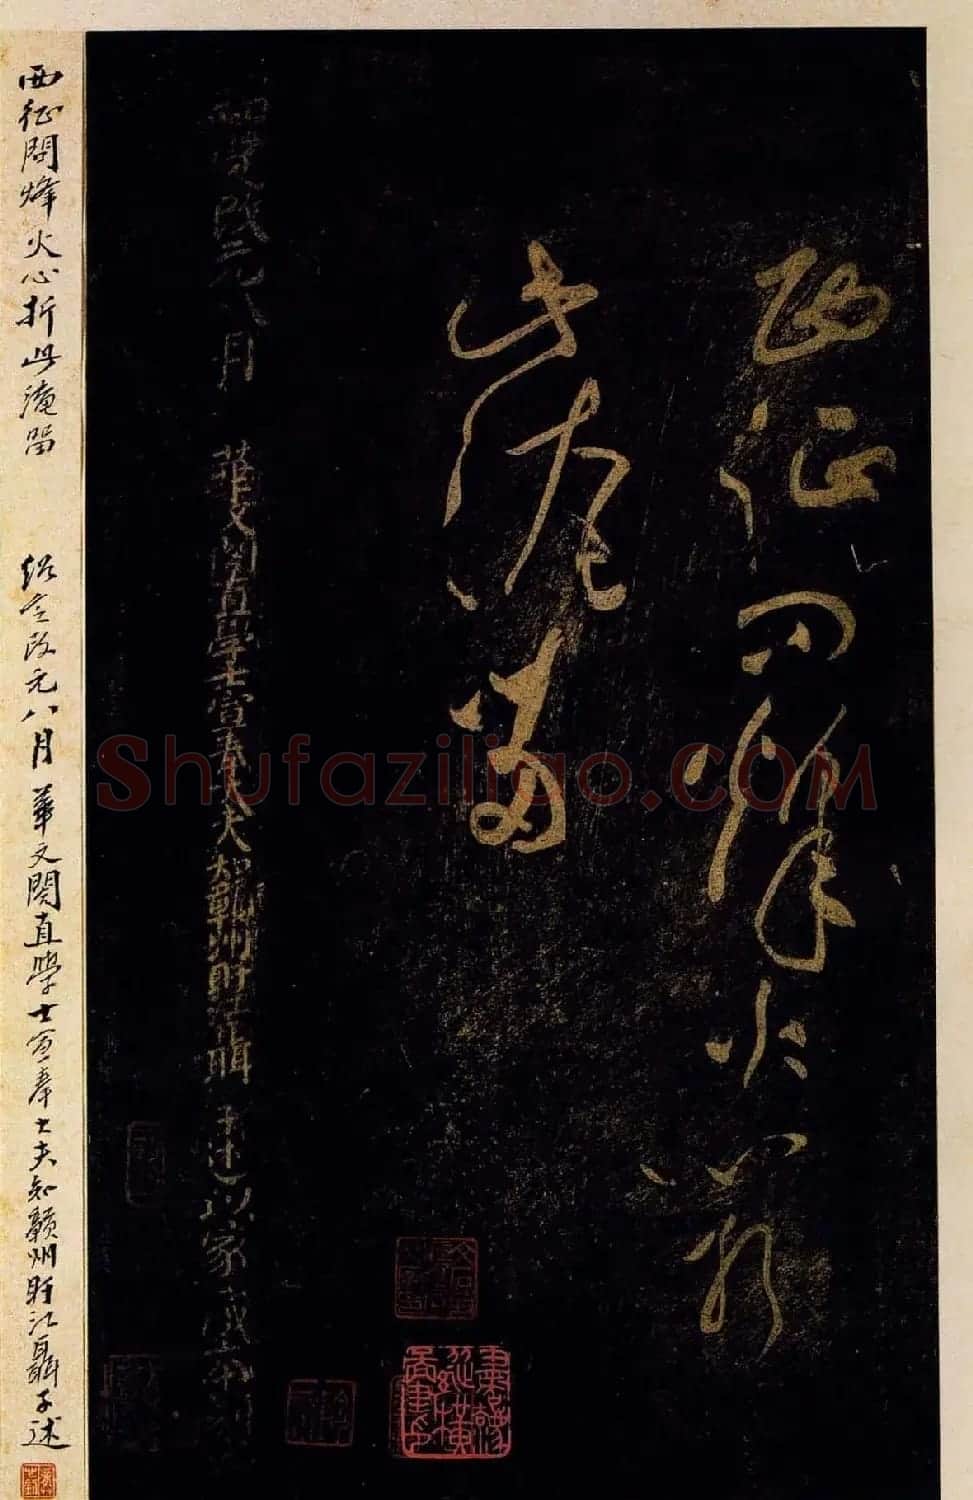 西征問烽火心折
此淹留
紹定改元八月 華文閣直學士宣奉大夫知贛州盱江聶子述以家藏
西征問烽火心折此淹留 紹定改元八月 華文閣直學士宣奉大夫知贛州盱江聶子述
Shufaziliao.COM